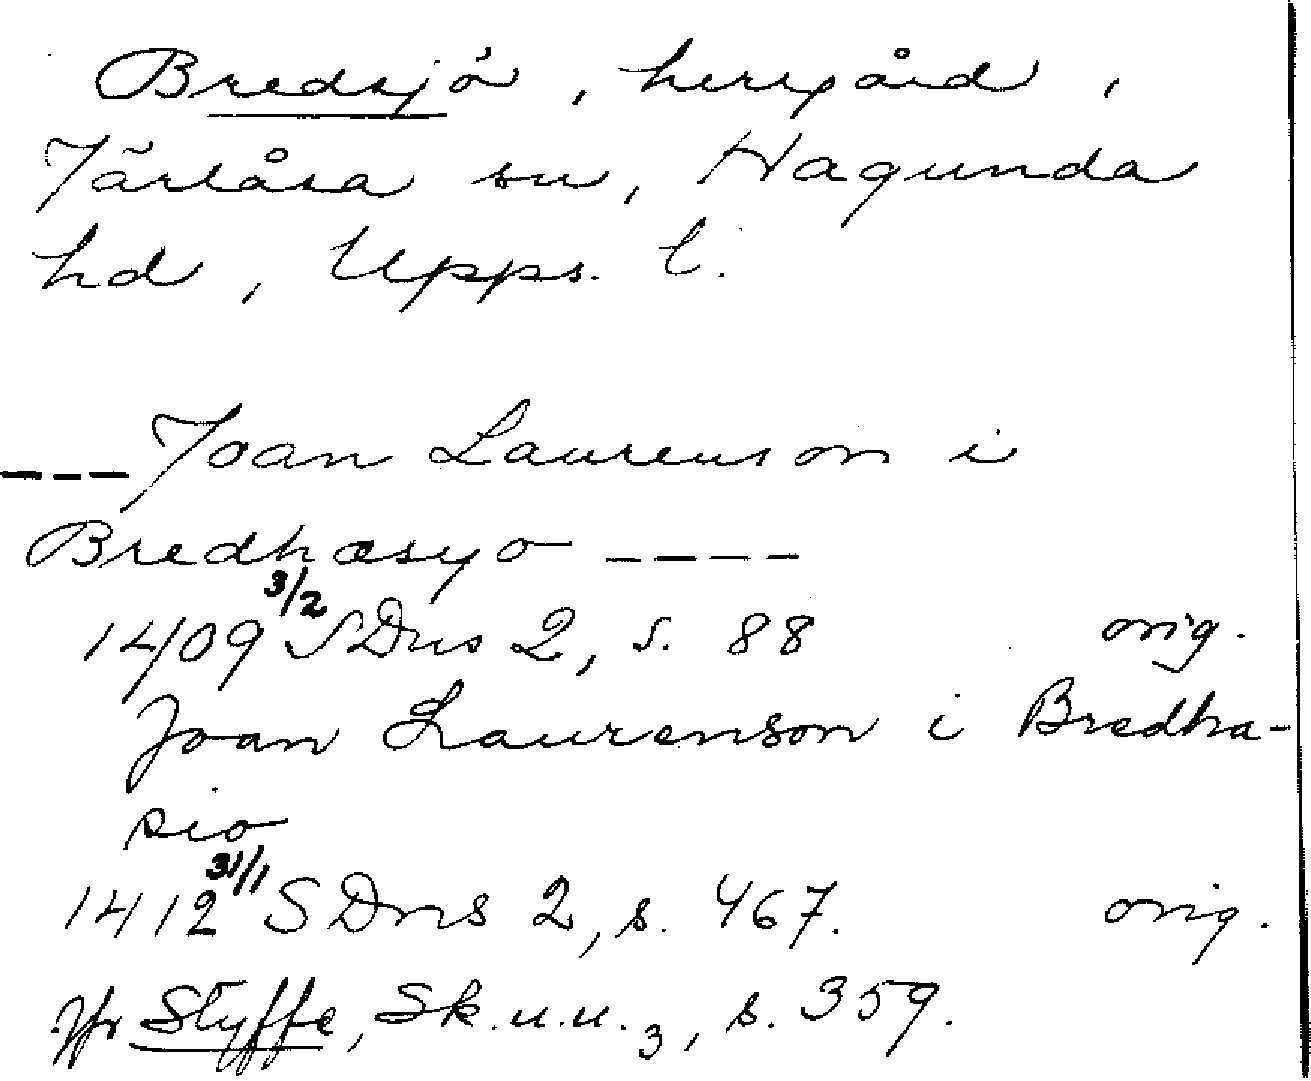 Bredsjö, herrgård,
Järlåsa sn, Hagunda
hd, Upps. l.
---Joan Laurenson i
Bredhæsyo ----
1409 3/2 SDns 2, s. 88 orig.
Joan Laurenson i Bredha-
sio
1412 31/1 SDns 2, s. 467. orig.
Jfr Styffe, Sk.u.u. 3, s. 359.